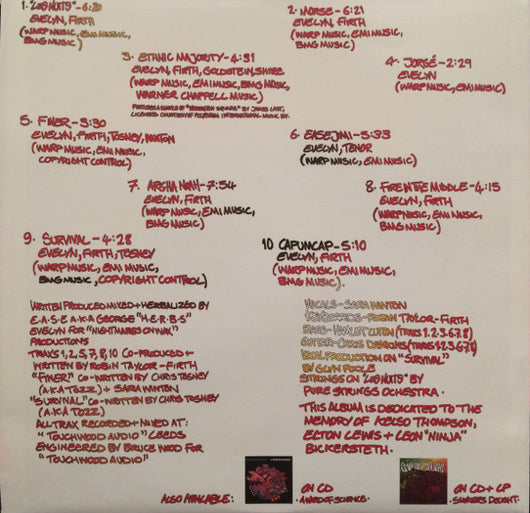 1. "LES NUITS" - 6:20
EVELYN, FIRTH
(WARP MUSIC, EMI MUSIC,
BMG MUSIC)
2. MORSE - 6:21
EVELYN, FIRTH
(WARP MUSIC, EMI MUSIC,
BMG MUSIC)
3. ETHNIC MAJORITY - 4:31
EVELYN, FIRTH, GOLDSTEIN, SHIRE
(WARP MUSIC, EMI MUSIC, BMG MUSIC,
WARNER CHAPPELL MUSIC)
FEATURES A SAMPLE OF BY JAMES LAST,
LICENSED COURTESY OF POLYGRAM INTERNATIONAL MUSIC BV.
4. JORSÉ - 2:29
EVELYN
(WARP MUSIC, EMI MUSIC)
5. FINER - 5:30
EVELYN, FIRTH, TOSNEY, WINTON
(WARP MUSIC, EMI MUSIC,
COPYRIGHT CONTROL)
6. EASEJMI - 5:33
EVELYN, TENOR
(WARP MUSIC, EMI MUSIC)
7. ARGHA NOAH - 7:54
EVELYN, FIRTH
(WARP MUSIC, EMI MUSIC,
BMG MUSIC)
8. FIRE IN THE MIDDLE - 4:15
EVELYN, FIRTH
(WARP MUSIC, EMI MUSIC,
BMG MUSIC)
9. SURVIVAL - 4:28
EVELYN, FIRTH, TOSNEY
(WARP MUSIC, EMI MUSIC,
BMG MUSIC, COPYRIGHT CONTROL)
10 CAPUMCAP - 5:10
EVELYN, FIRTH
(WARP MUSIC, EMI MUSIC,
BMG MUSIC).
WRITTEN PRODUCED MIXED + HERBALIZED BY
E.A.S.E A.K.A GEORGE "H.E.R.B'S"
EVELYN FOR "NIGHTMARES ON WAX"
PRODUCTIONS
TRAXS 1,2,5,7,8,10 CO-PRODUCED +
WRITTEN BY ROBIN TAYLOR - FIRTH
"FINER" CO-WRITTEN BY CHRIS TOSNEY
(A.K.A TOZZ) + SARA WINTON
"SURVIVAL" CO-WRITTEN BY CHRIS TOSNEY
(A.K.A TOZZ)
ALL TRAX RECORDED + MIXED AT:
"TOUCHWOOD AUDIO" LEEDS
ENGINEERED BY BRUCE WOOD FOR
"TOUCHWOOD AUDIO"
VOCALS - SARA WINTON
KEYBOARDS - ROBIN TAYLOR-FIRTH
BASS - (TRAXS 1.2.3.6.7.8)
GUITAR - CHRIS DAWKINS (TRAXS 1.2.3.6.7.8)
VOCAL PRODUCTION ON "SURVIVAL"
BY GLYN POOLE
STRINGS ON "LES NUITS" BY
PURE STRINGS OCHESTRA.
THIS ALBUM IS DEDICATED TO THE
MEMORY OF KELSO THOMPSON,
ELTON LEWIS + LEON "NINJA"
BICKERSTETH.
ALSO AVAILABLE:
ON CD
A WORD OF SCIENCE.
ON CD + LP
SMOKERS DELIGHT.